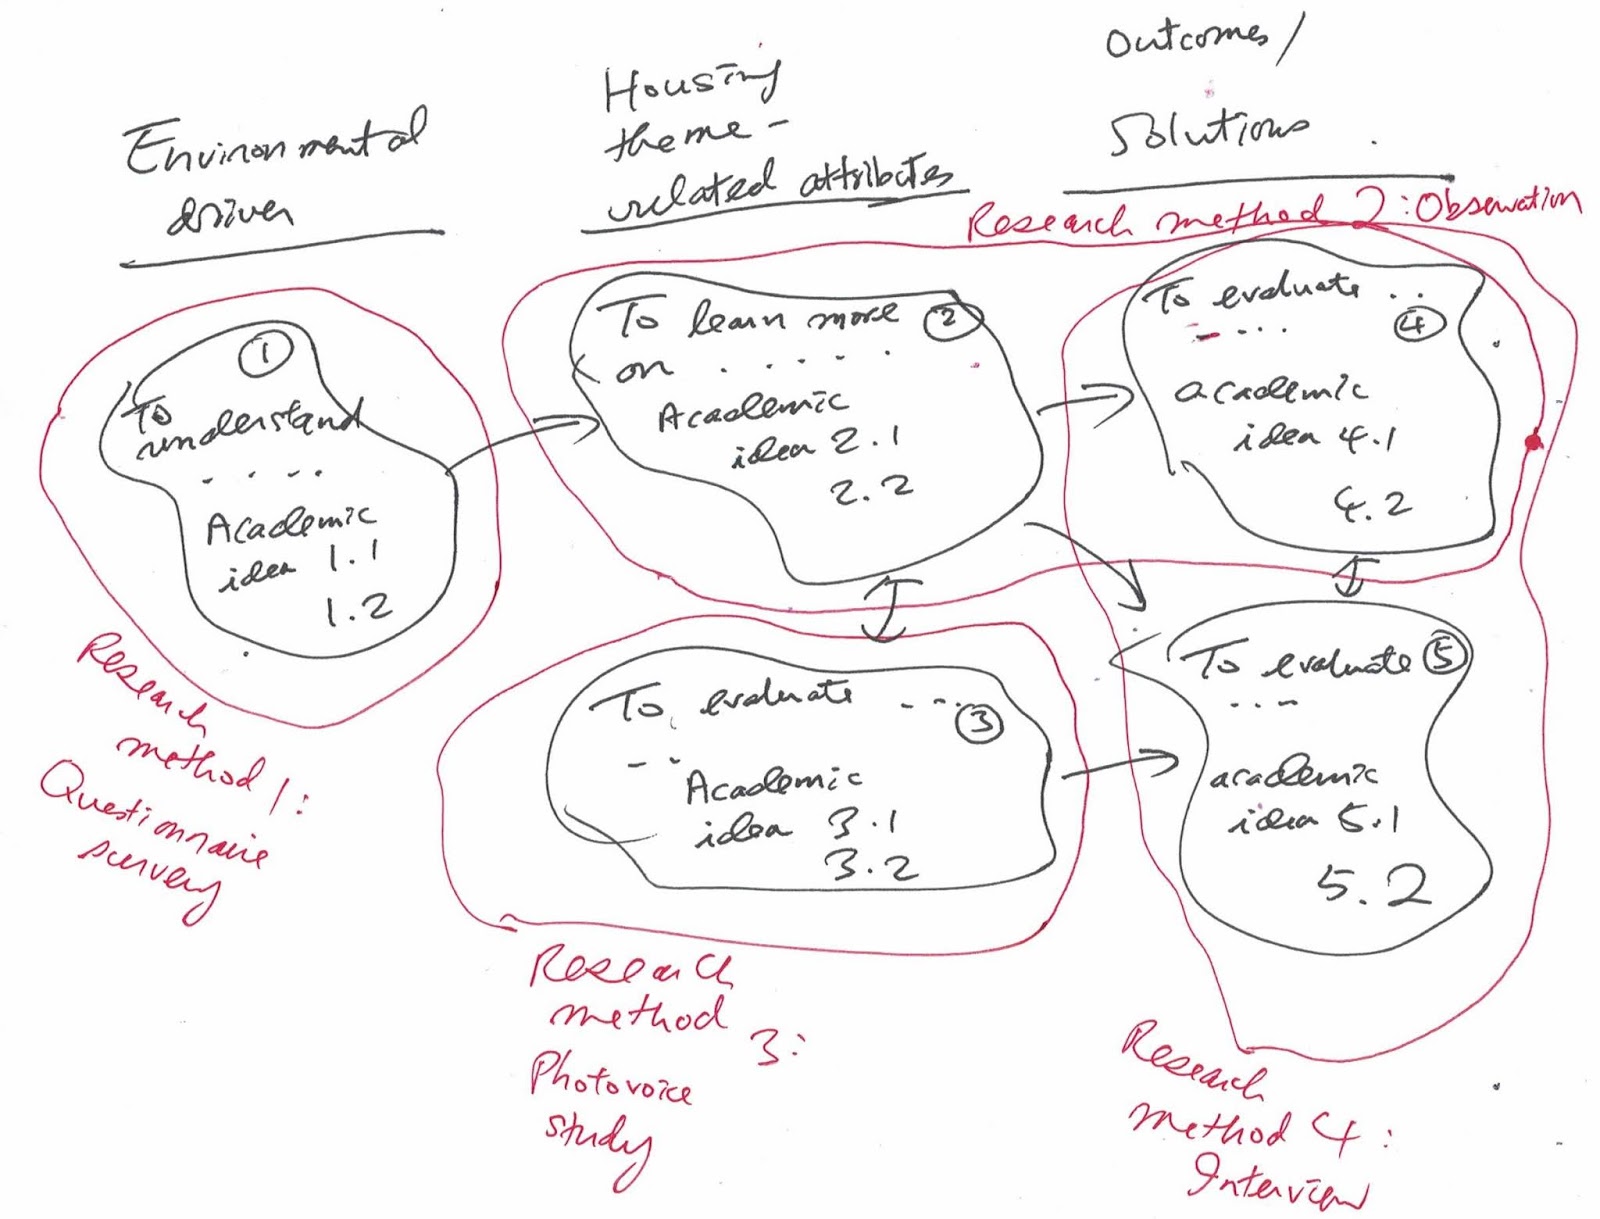 Environmental
driver
Housing
theme-
related attributes
Outcomes/
Solutions
Research method 2: Observation
①
To
understand
....
Academic
idea 1.1
1.2
Research
method 1:
Questionnaire
survey
To learn more ②
on ......
Academic
idea 2.1
2.2
To evaluate ....
③
--..
Academic
idea 3.1
3.2
Research
method 3:
Photovoice
study
To evaluate ..
-... ④
academic
idea 4.1
4.2
To evaluate ⑤
...-
academic
idea 5.1
5.2
Research
method 4:
Interview